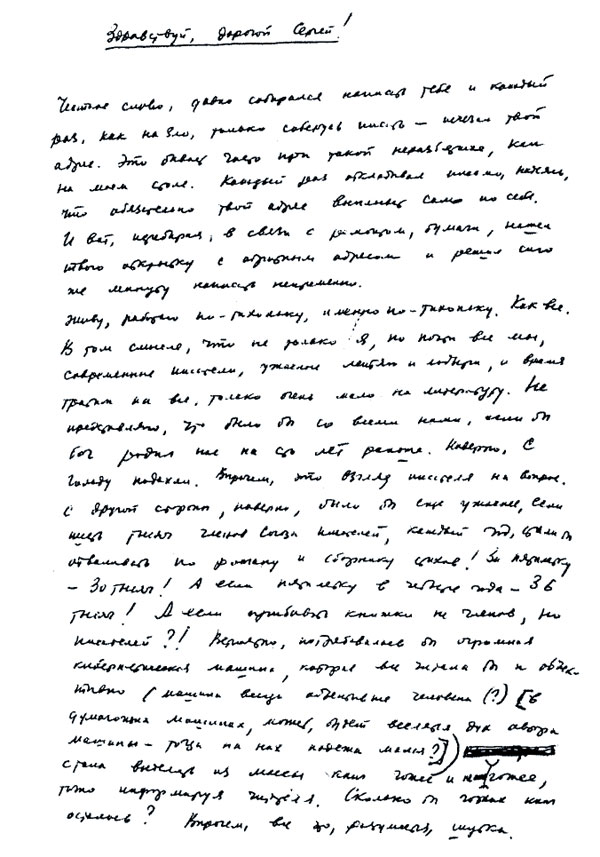 Здравствуй, дорогой Сергей!
Честное слово, давно собирался написать тебе и каждый
раз, как на зло, только соберусь писать — исчезал твой
адрес. Это бывает часто при такой неразберихе, как
на моем столе. Каждый раз откладывал письмо, надеясь,
что обязательно твой адрес выплывет само по себе.
И вот, перебирая, в связи с ремонтом, бумаги, нашел
твою открытку с обратным адресом и решил сию
же минуту написать непременно.
Живу, работаю по-тихоньку, именно по-тихоньку. Как все.
В том смысле, что не только я, но почти все мы,
современные писатели, ужасные лентяи и лодыри, и время
тратим на все, только очень мало на литературу. Не
представляю, что было бы со всеми нами, если бы
бог родил нас на сто лет раньше. Наверно, с
голоду подохли. Впрочем, это взгляд писателя на вопрос.
С другой стороны, наверно, было бы еще ужаснее, если
шесть тысяч членов Союза писателей, каждый год, стали бы
отваливать по роману и сборнику стихов! За пятилетку
— 30 тысяч! А если пятилетку в четыре года — 36
тысяч! А если прибавить книжки не членов, но
писателей?! Вероятно, потребовалась бы огромная
кибернетическая машина, которая все читала бы и объек-
тивно (машина всегда объективнее человека (?) [в
думающих машинах, может, будет вселяться дух автора
машины — тогда на них надежда малая?])
стала выделять из массы книг гожее и негожее,
точно информируя читателя. Сколько бы гожих книг
осталось? Впрочем, все это, разумеется, шутка.